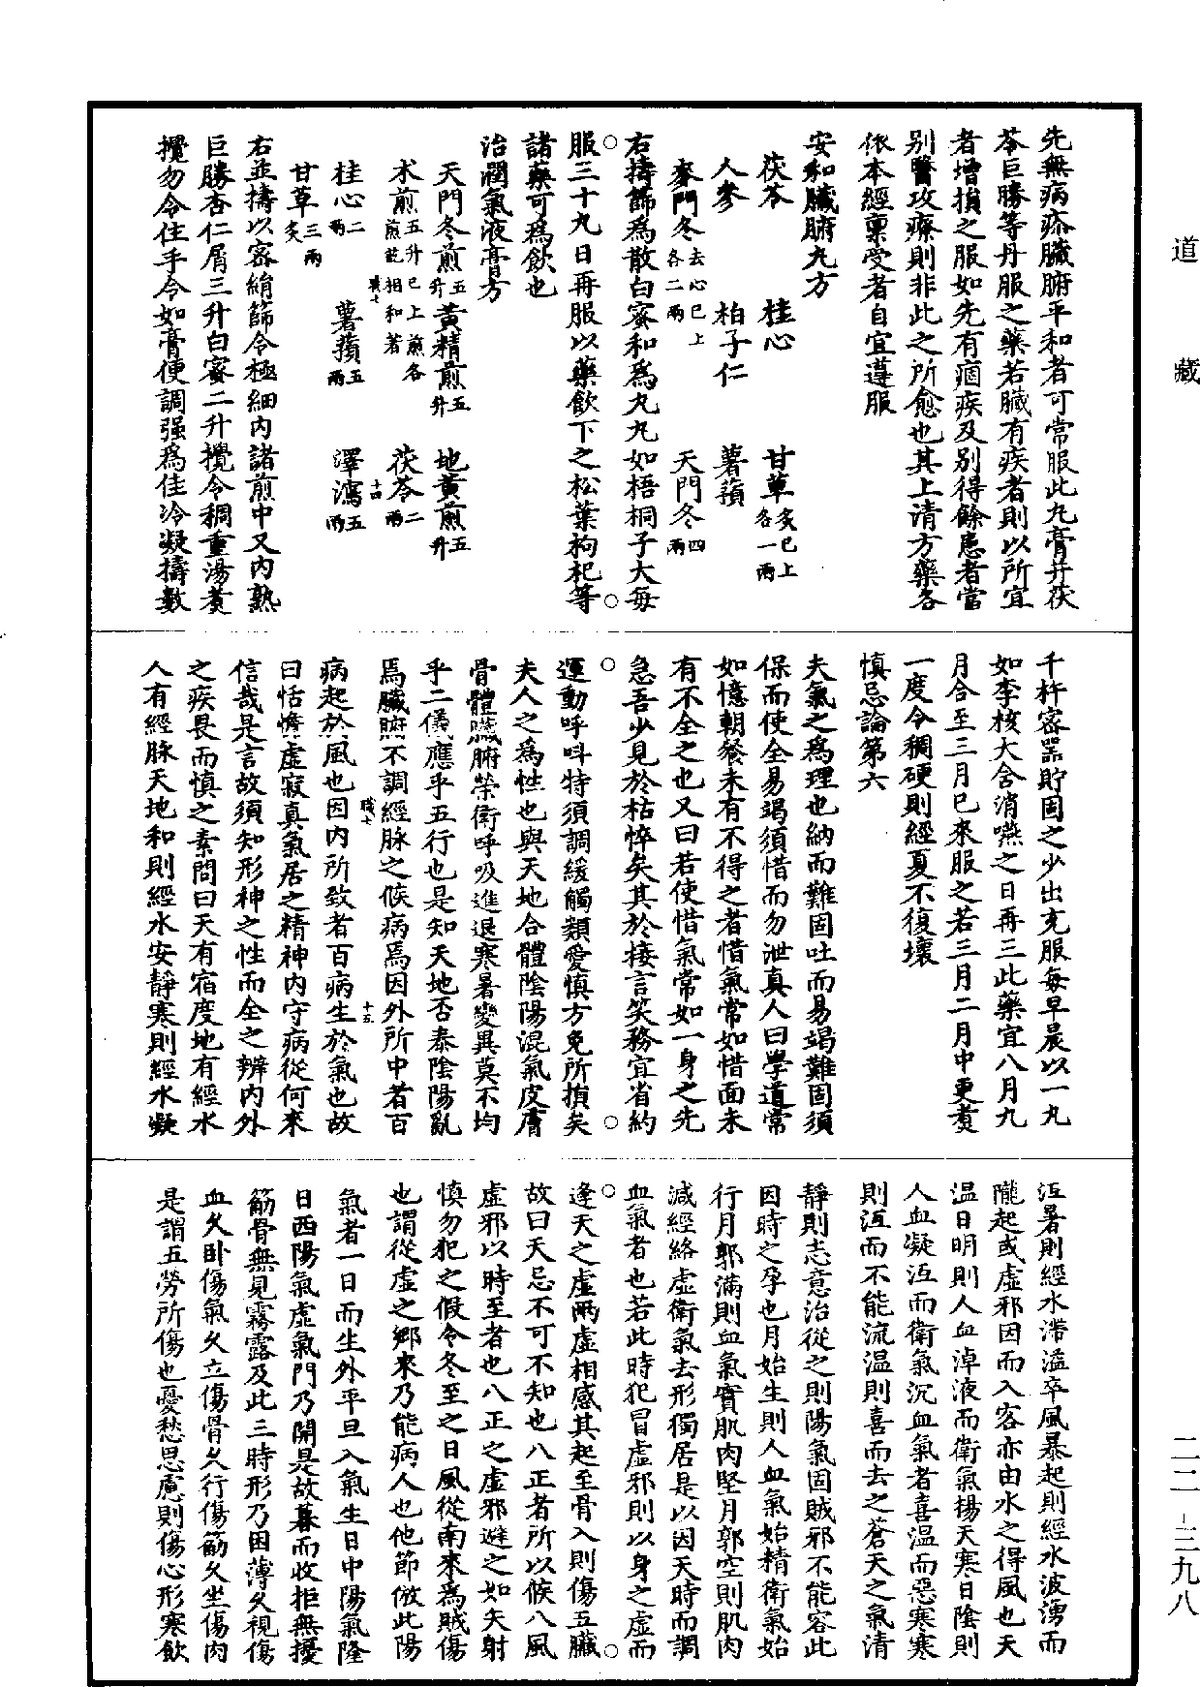 道藏
二二-三九八
先無病疹臟腑平和者可常服此丸膏并茯
苓巨勝等丹服之藥若臟有疾者則以所宜
者增損之服如先有痼疾及别得餘患者當
别醫攻療則非此之所愈也其上清方藥各
依本經稟受者自宜遵服
安和臟腑丸方
茯苓 桂心 甘草炙已上各一兩
人參 柏子仁 薯蕷
麥門冬去心已上各二兩 天門冬四兩
右擣篩爲散白蜜和爲丸丸如梧桐子大每
服三十九日再服以藥飲下之松葉枸杞等
諸藥可爲飲也
治潤氣液膏方
天門冬煎五升 黃精煎五升 地黃煎五升
术煎五升已上煎各煎訖相和著 茯苓二兩
職七 十四
桂心二兩 薯蕷五兩 澤瀉五兩
甘草三兩炙
右並擣以密絹篩令極細内諸煎中又内熟
巨勝杏仁屑三升白蜜二升攪令稠重湯煑
攪勿令住手令如膏便調强爲佳冷凝擣數
千杵密器貯固之少出充服每早晨以一丸
如李核大含消嚥之日再三此藥宜八月九
月合至三月已來服之若三月二月中更煑
一度令稠硬則經夏不復壞
慎忌論第六
夫氣之爲理也納而難固吐而易竭難固須
保而使全易竭須惜而勿泄真人曰學道常
如憶朝餐未有不得之者惜氣常如惜面未
有不全之也又曰若使惜氣常如一身之先
急吾少見於枯悴矣其於接言笑務宜省約
運動呼叫特須調緩觸類愛慎方免所損矣
夫人之爲性也與天地合體陰陽混氣皮膚
骨體臟腑榮衛呼吸進退寒暑變異莫不均
乎二儀應乎五行也是知天地否泰陰陽亂
焉臟腑不調經脉之候病焉因外所中者百
職七 十五
病起於風也因内所致者百病生於氣也故
曰恬憺虛寂真氣居之精神内守病從何來
信哉是言故須知形神之性而全之辨内外
之疾畏而慎之素問曰天有宿度地有經水
人有經脉天地和則經水安靜寒則經水凝
沍暑則經水滯溢卒風暴起則經水波湧而
隴起或虛邪因而入客亦由水之得風也天
温日明則人血淖液而衛氣揚天寒日陰則
人血凝沍而衛氣沉血氣者喜温而惡寒寒
則沍而不能流温則喜而去之蒼天之氣清
靜則志意治從之則陽氣固賊邪不能容此
因時之孕也月始生則人血氣始精衛氣始
行月郭滿則血氣實肌肉堅月郭空則肌肉
減經絡虛衛氣去形獨居是以因天時而調
血氣者也若此時犯冒虛邪則以身之虛而
逢天之虛兩虛相感其起至骨入則傷五臟
故曰天忌不可不知也八正者所以候八風
虛邪以時至者也八正之虛邪避之如矢射
慎勿犯之假令冬至之日風從南來爲賊傷
也謂從虛之鄉來乃能病人也他節倣此陽
氣者一日而生外平旦入氣生日中陽氣隆
日西陽氣虛氣門乃開是故暮而收拒無擾
筋骨無見霧露及此三時形乃困薄久視傷
血久卧傷氣久立傷骨久行傷筋久坐傷肉
是謂五勞所傷也憂愁思慮則傷心形寒飲